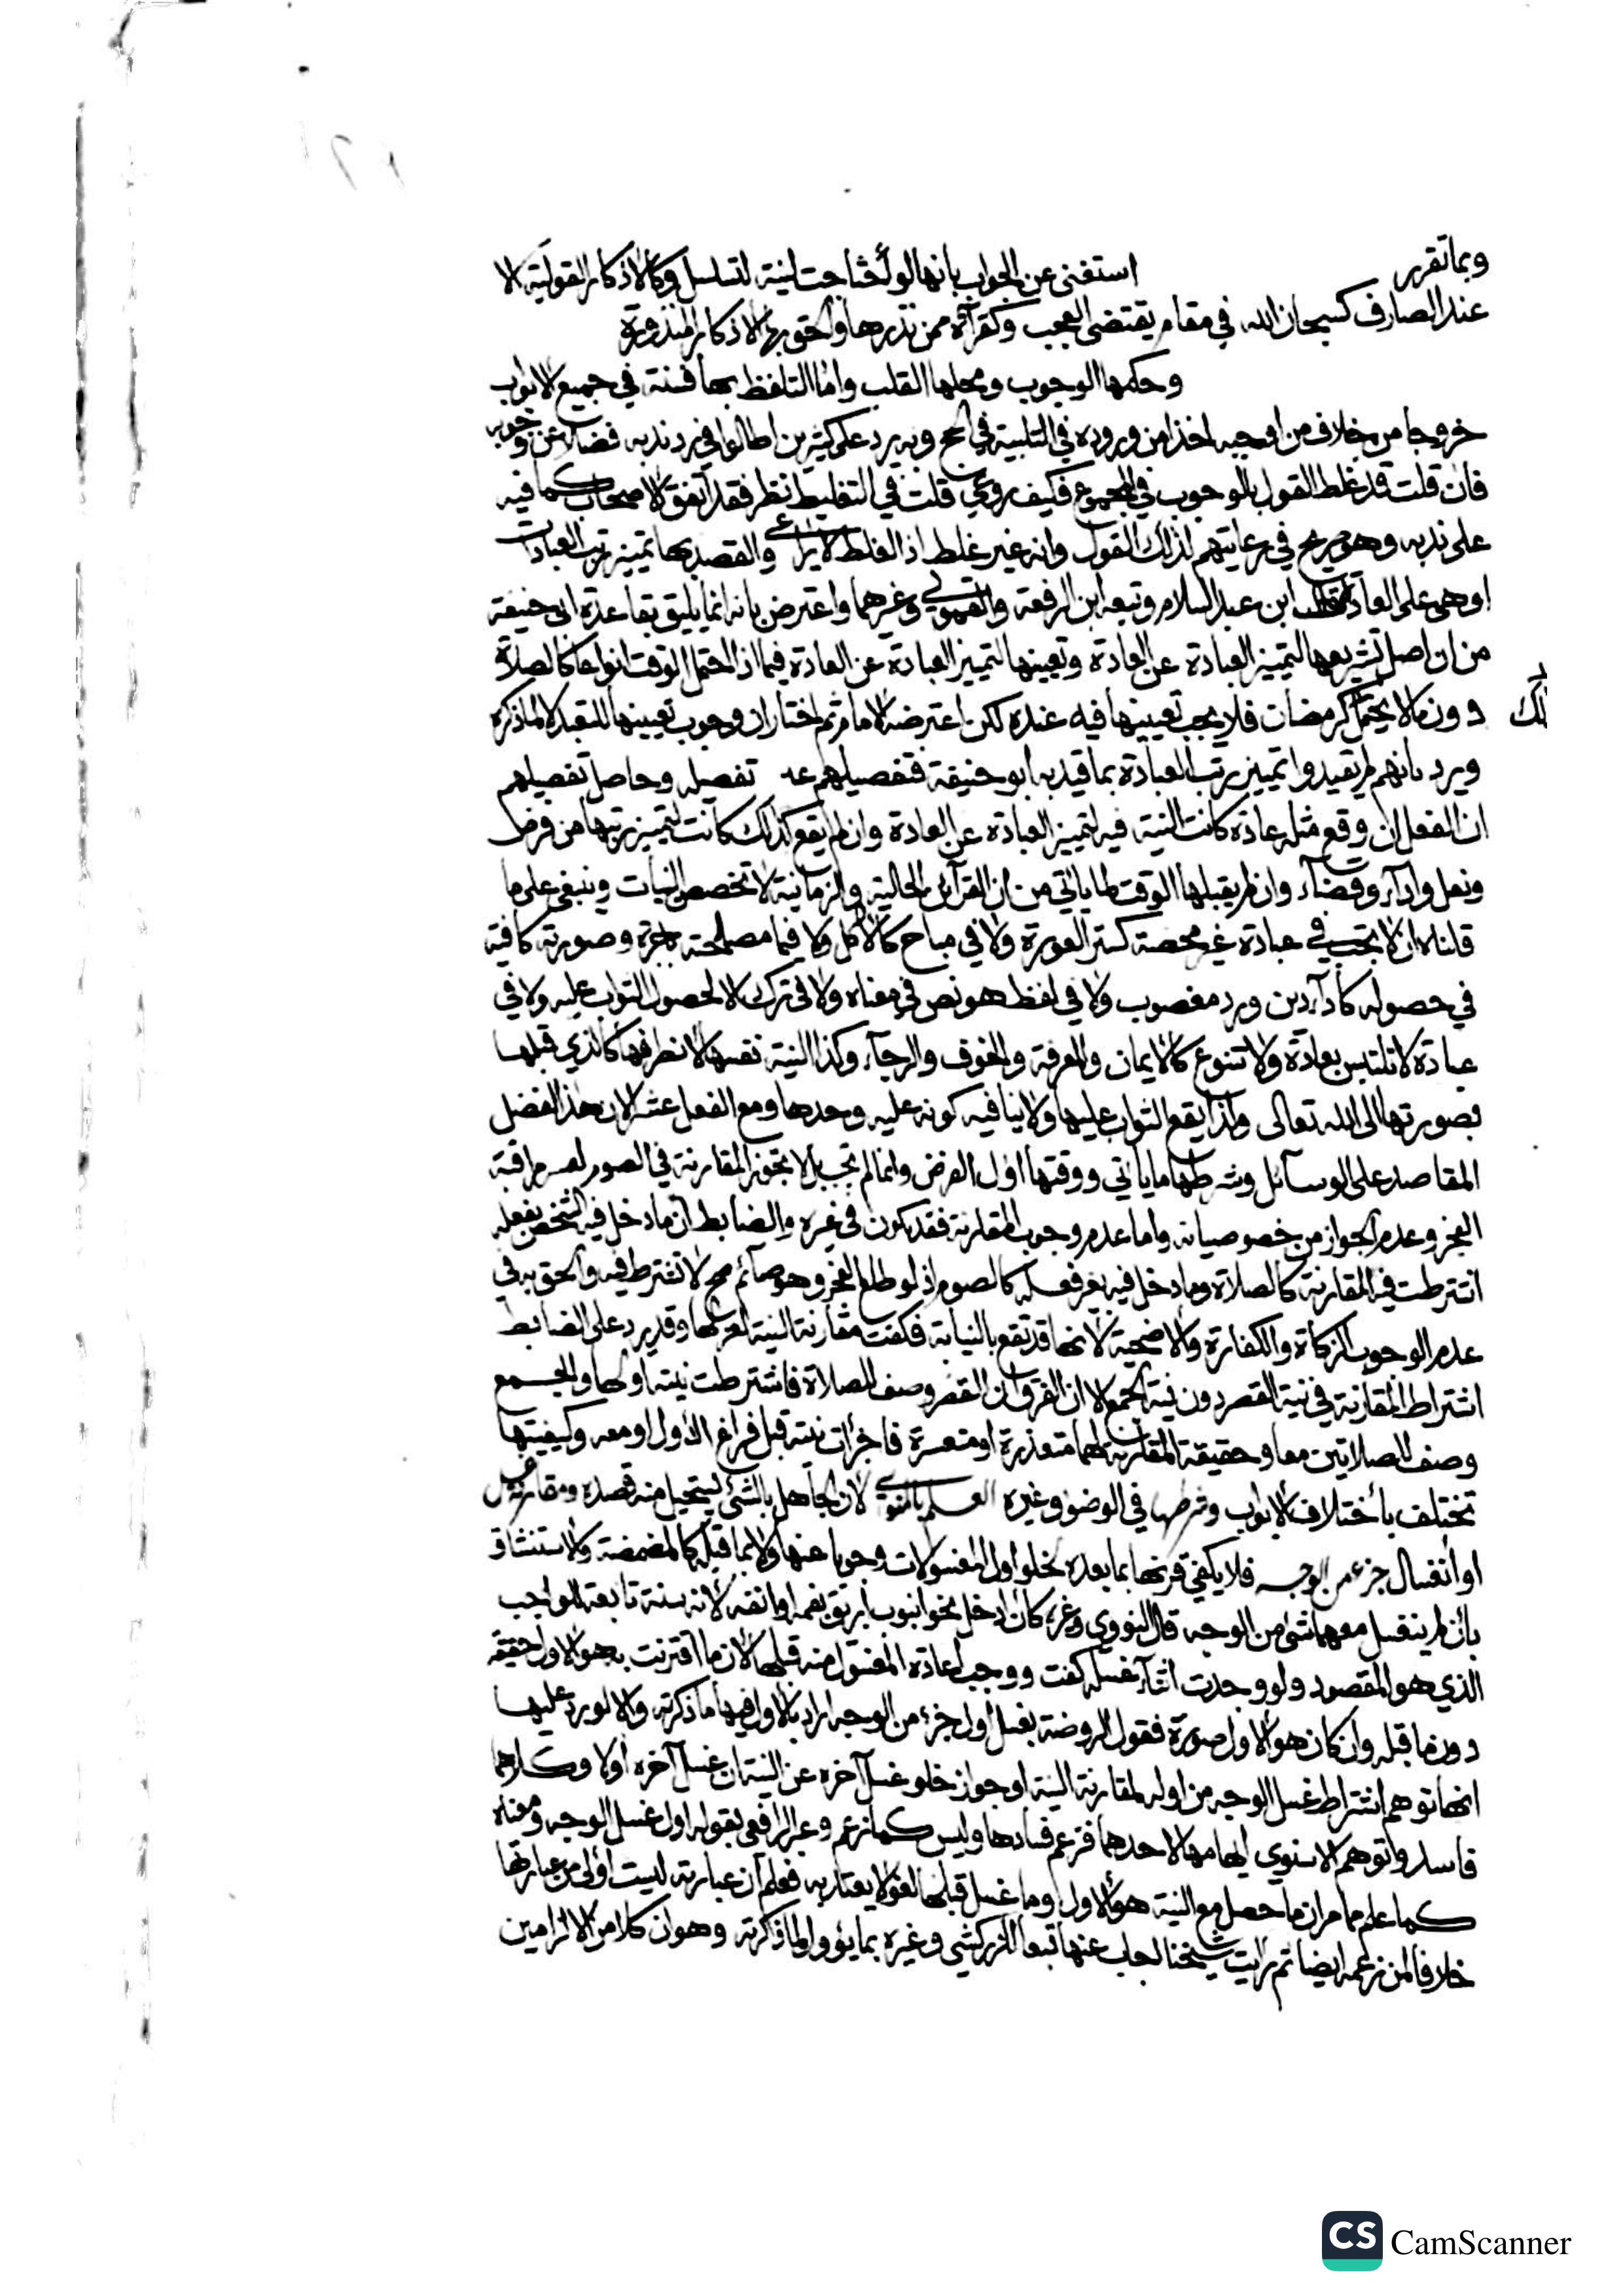 وبما تقرر استغنى عن الجواب بانها لو أحتاجت لنية لتسلسل وكالاذكار القولية الا
عند الصارف كسبحان الله في مقام يقتضى العجب وكقرآة ممن نذرها وألحق بها الاذكار المنذورة
وحكمها الوجوب ومحلها القلب واما التلفظ بها فسنة في جميع الابواب
خروجا من خلاف من اوجبه اخذا من وروده في التلبية في الحج وبه يرد على كثيرين اطالوا في رد ندبه فضلا عن وجوبه
فان قلت قد غلط القول بالوجوب في المجموع فكيف روعي قلت في التغليط نظر فقد اتفق الاصحاب كما فيه
على ندبه وهو صريح في رعايتهم لذلك القول وانه غير غلط اذ الغلط لا يراعى والقصد بها تمييز رتب العبادات
او هي على العادة ابن عبد السلام وتبعه ابن الرفعة والقمولي وغيرهما واعترض بانه انما يليق بقاعدة ابى حنيفة
من ان اصل تشريعها لتمييز العبادة عن العادة وتعيينها لتمييز العبادة عن العادة فيما اذا احتمل الوقت انواعا كالصلاة
دون ما لا يحتمل كرمضان فلا يجب تعيينها فيه عنده لكن اعترضه الامام ثم اختار ان وجوب تعيينها للتعبد لا لما ذكره
لك
ويرد بانهم لم يقيدوا تمييز رتب العبادة بما قيد به ابو حنيفة فتفصيلهم تفصيله وحاصل تفصيلهم
ان الفعل ان وقع مثله عادة كانت النية فيه لتمييز العبادة عن العادة وان لم يقع كذلك كانت لتمييز رتبها من فرض
ونفل واداء وقضاء وان لم يقبلها الوقت لما ياتي من ان القرائن الحالية والزمانية لا تخصص النيات وينبغي على ما
قلناه ان لا تجب في عبادة غير محضة كستر العورة ولا في مباح كالاكل ولا فيما مصلحته وصورته كافية
في حصوله كأداء دين ورد مغصوب ولا في لفظ هو نص في معناه ولا في ترك الا لحصول الثواب عليه ولا في
عبادة لا تلتبس بعادة ولا تتنوع كالايمان والمعرفة والخوف والرجاء وكذا النية نفسها لانصرافها كالذي قبلها
بصورتها الى الله تعالى ولذا يقع الثواب عليها ولا ينافيه كونه عليه وحدها ومع الفعل عشر لان هذا لفضل
المقاصد على الوسائل وشرطها ما ياتي ووقتها اول الفرض وانما لم تجب بل لا تجوز المقارنة في الصوم لعسر مراقبة
الفجر وعدم الجواز من خصوصياته واما عدم وجوب المقارنة فقد يكون في غيره والضابط ان ما دخل فيه الشخص بفعله
اشترطت فيه المقارنة كالصلاة وما دخل فيه بغير فعله كالصوم اذ لو طلع الفجر وهو صائم صح لا تشترط فيه وألحق به في
عدم الوجوب الزكاة والكفارة والاضحية لانها قد تقع بالنيابة فكفت مقارنة النية لعزلها وقد يرد على الضابط
اشتراط المقارنة في نية القصر دون نية الجمع الا ان الفرق ان القصر وصف للصلاة فاشترطت نيته اولها والجمع
وصف للصلاتين معا وحقيقة المقارنة لهما متعذرة او متعسرة فاجزأت نيته قبل فراغ الاول او معه وكيفيتها
تختلف بأختلاف الابواب وشرطها في الوضوء وغيره العلم بالمنوي لان الجاهل بالشئ يستحيل منه قصده ومقارنة غسل
او أنغسال جزء من الوجه فلا يكفي قرنها بما بعده لخلو اول المغسولات وجوبا عنها ولا بما قبله كالمضمضة والاستنشاق
بأن لم ينغسل معهما شئ من الوجه قال النووي وغيره كأن ادخل نحو انبوب ابريق بفمه او انفه لانه سنة تابعة للواجب
الذي هو المقصود ولو وجدت اثناء غسله كفت ووجب اعادة المغسول منه قبلها لان ما اقترنت به هو الاول حقيقة
دون ما قبله وان كان هو الاول صورة فقول الروضة بغسل اول جزء من الوجه المراد بالاول فيها ما ذكرته والا لورد عليها
انها توهم اشتراط غسل الوجه من اوله لمقارنة النية او جواز خلو غسل آخره عن النية ان غسل آخره اولا وكلاهما
فاسد وتوهم الاسنوي ايهامها لاحدهما فزعم فسادها وليس كما زعم وعبر الرافعي بقوله اول غسل الوجه ومعناه
كما علم مما مر ان ما حصل مع النية هو الاول وما غسل قبلها لغو لا يعتد به فعلم ان عبارته ليست اولى من عبارتها
خلافا لمن زعمه ايضا ثم رأيت شيخنا اجاب عنها تبعا للزركشي وغيره بما يؤول لما ذكرته وهو ان كلا من الامرين
CS CamScanner